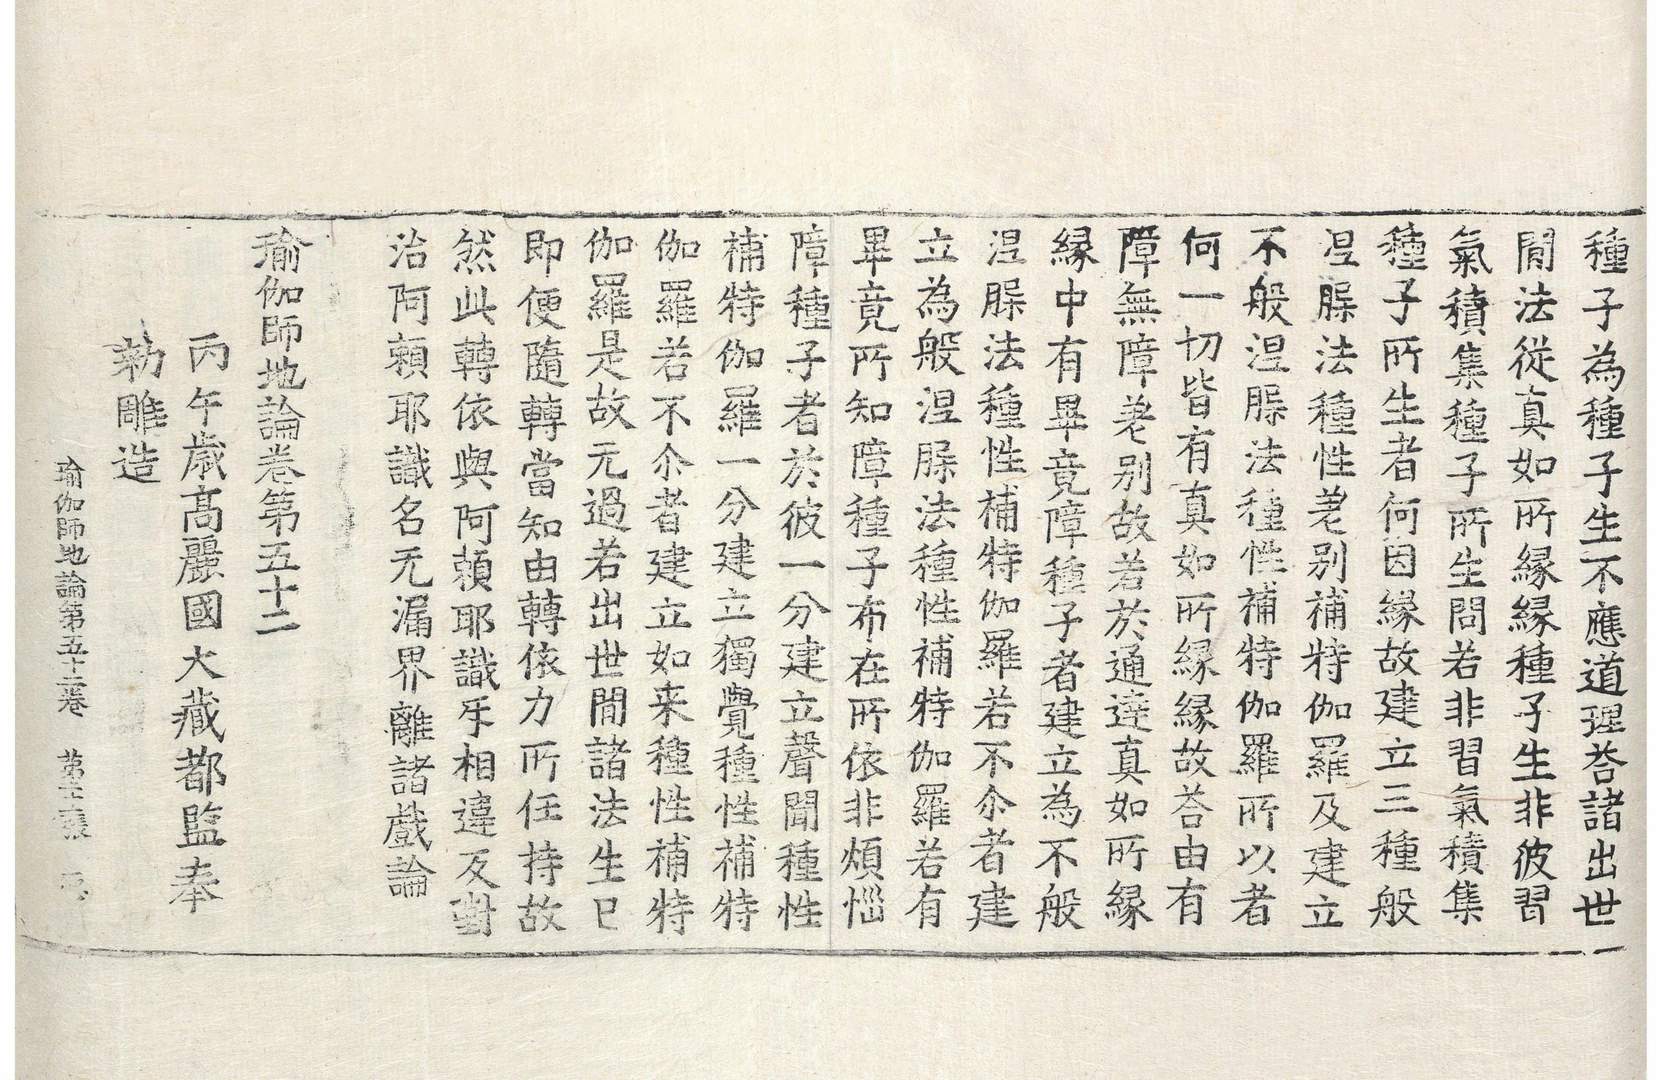 種子為種子生不應道理荅諸出世
閒法從真如所緣緣種子生非彼習
氣積集種子所生問若非習氣積集
種子所生者何因緣故建立三種般
涅槃法種性差別補特伽羅及建立
不般涅槃法種性補特伽羅所以者
何一切皆有真如所緣緣故荅由有
障無障差別故若於通達真如所緣
緣中有畢竟障種子者建立為不般
涅槃法種性補特伽羅若不尒者建
立為般涅槃法種性補特伽羅若有
畢竟所知障種子布在所依非煩惱
障種子者於彼一分建立聲聞種性
補特伽羅一分建立獨覺種性補特
伽羅若不尒者建立如来種性補特
伽羅是故无過若出世閒諸法生已
即便隨轉當知由轉依力所任持故
然此轉依與阿賴耶識㸦相違反對
治阿賴耶識名无漏界離諸戲論
瑜伽師地論卷第五十二
丙午歳高麗國大藏都監奉
勑雕造
瑜伽師地論第五十二卷 第 張